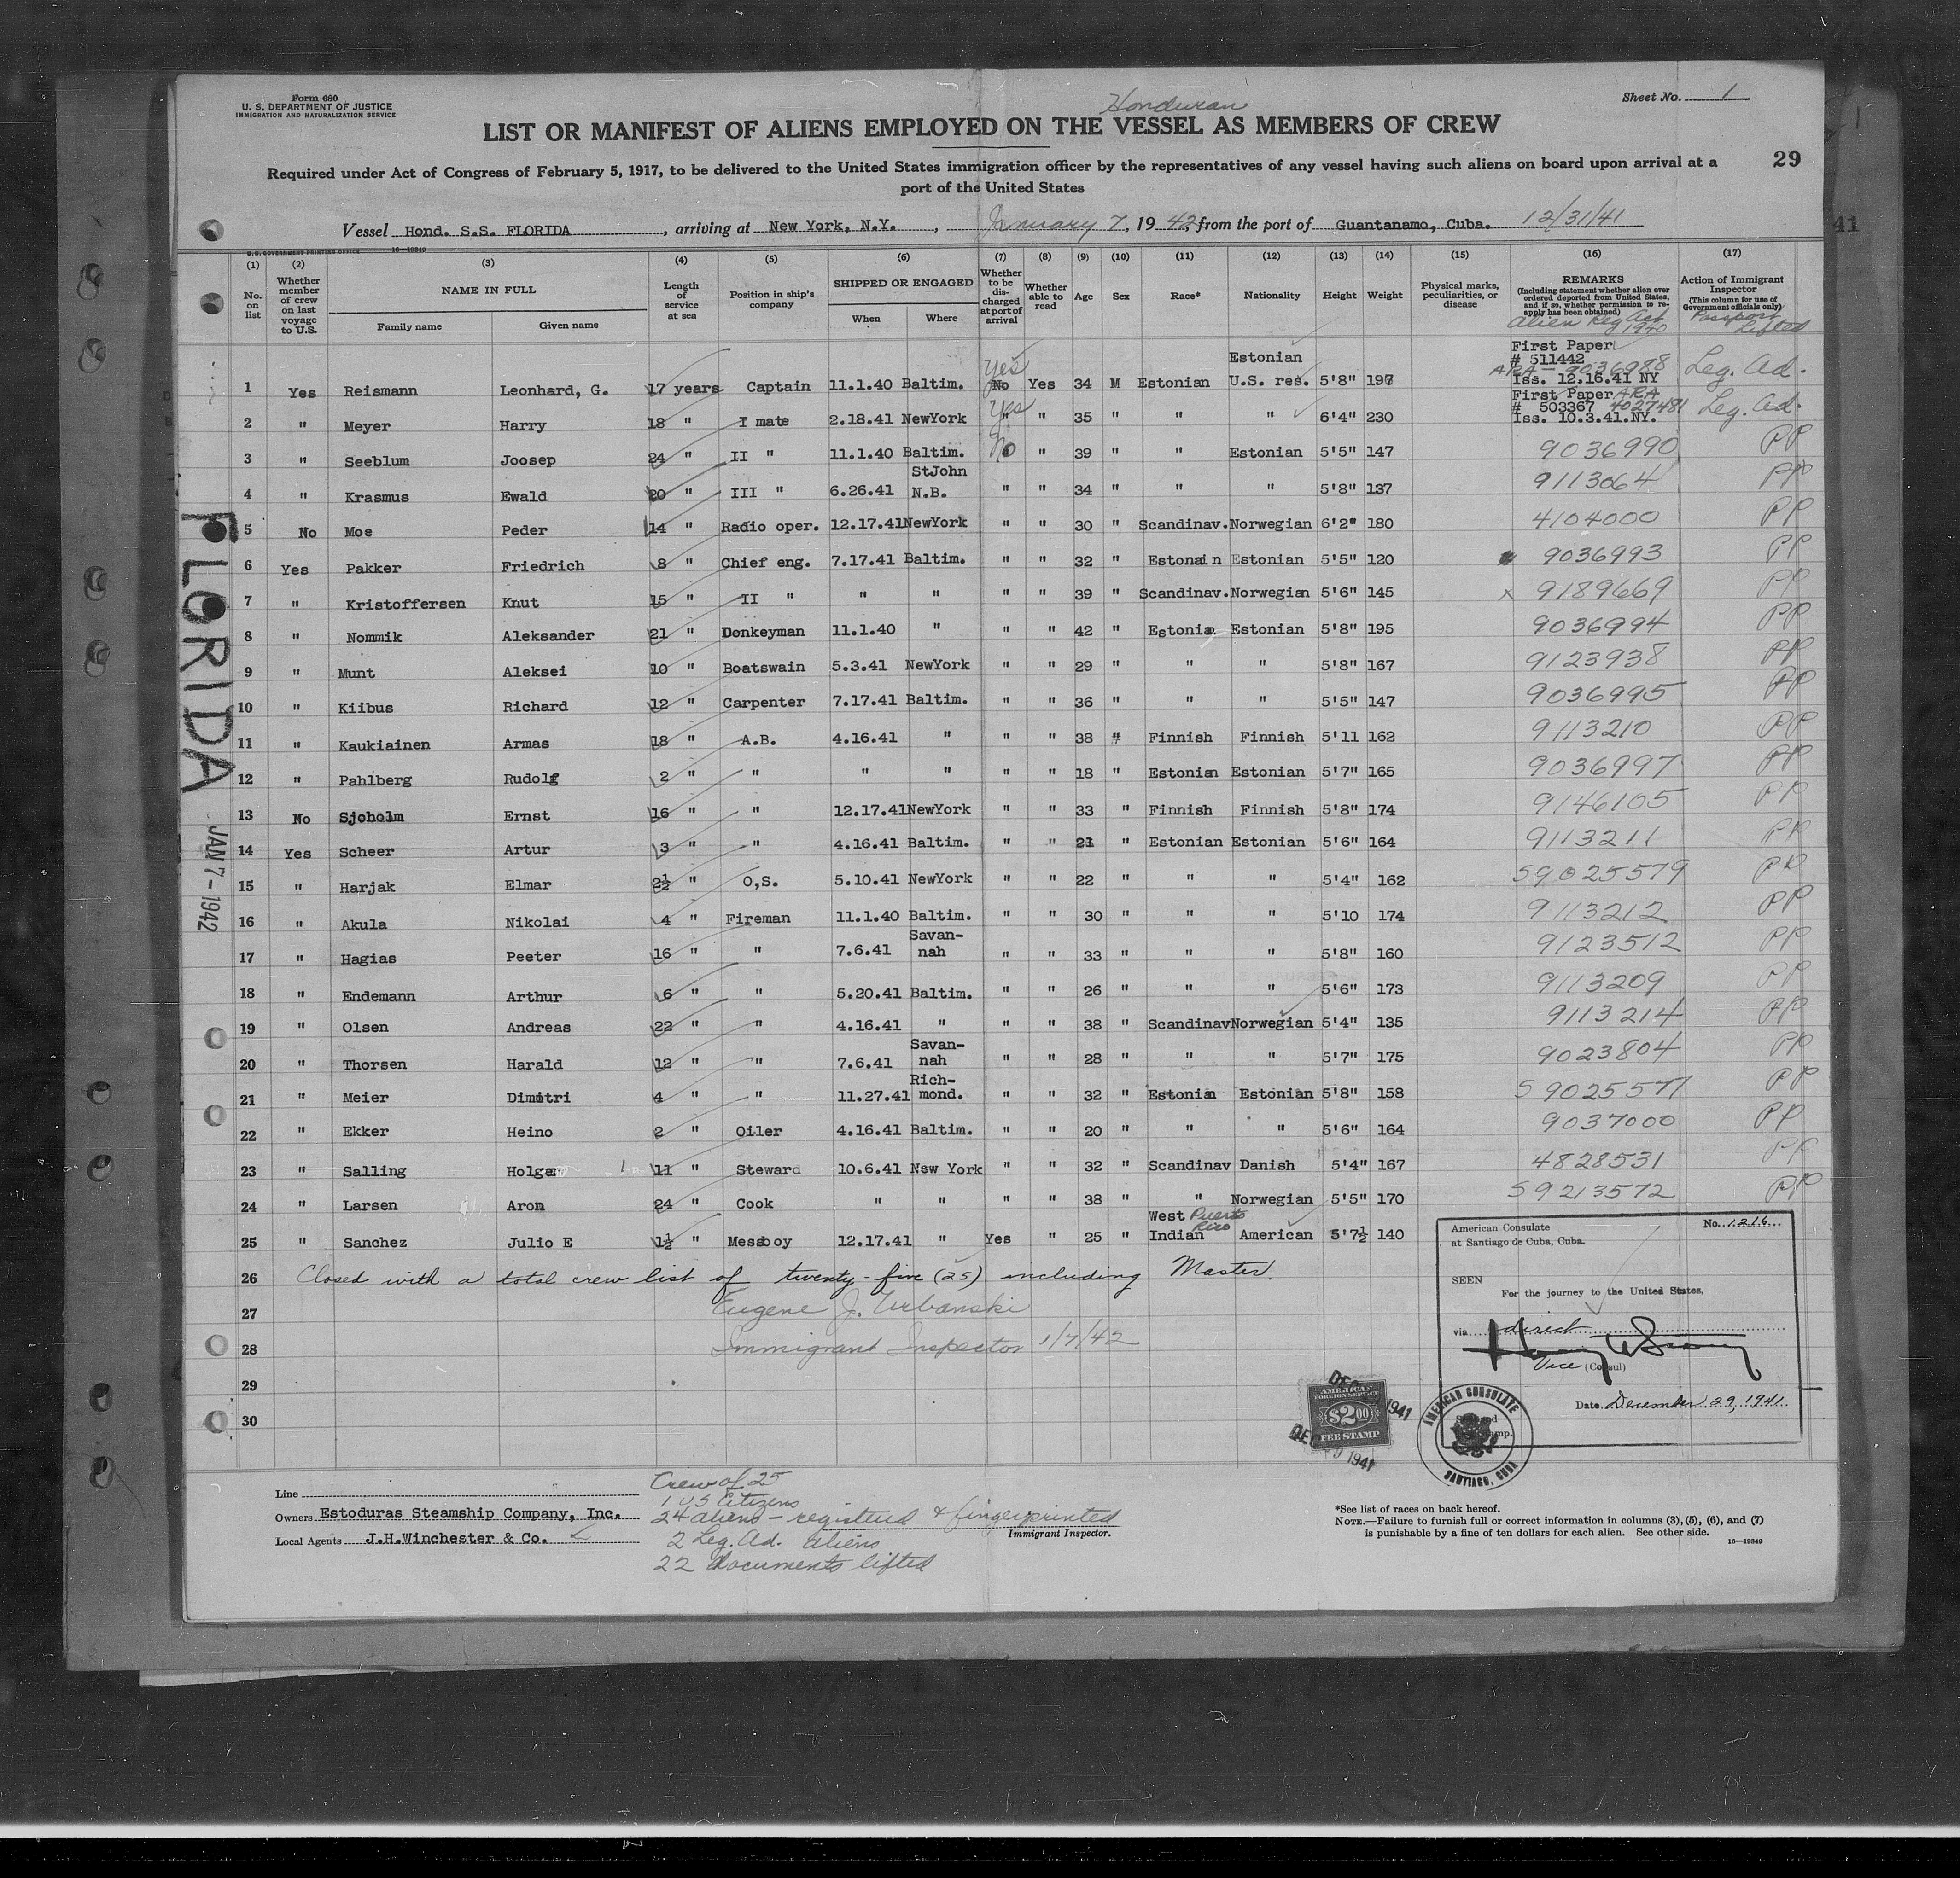 Form 680
U. S. DEPARTMENT OF JUSTICE
IMMIGRATION AND NATURALIZATION SERVICE
Honduran
Sheet No. 1
LIST OR MANIFEST OF ALIENS EMPLOYED ON THE VESSEL AS MEMBERS OF CREW
29
Required under Act of Congress of February 5, 1917, to be delivered to the United States immigration officer by the representatives of any vessel having such aliens on board upon arrival at a
port of the United States
Vessel Hond. S.S. FLORIDA, arriving at New York, N.Y., January 7, 1942, from the port of Guantanamo, Cuba. 12/31/41
41
U.S. GOVERNMENT PRINTING OFFICE 16—19349
(1) No. on list
(2) Whether member of crew on last voyage to U.S.
(3) NAME IN FULL Family name Given name
(4) Length of service at sea
(5) Position in ship's company
(6) SHIPPED OR ENGAGED When Where
(7) Whether to be discharged at port of arrival
(8) Whether able to read
(9) Age
(10) Sex
(11) Race*
(12) Nationality
(13) Height
(14) Weight
(15) Physical marks, peculiarities, or disease
(16) REMARKS (Including statement whether alien ever ordered deported from United States, and if so, whether permission to re-apply has been obtained) Alien Reg Act 1940
(17) Action of Immigrant Inspector (This column for use of Government officials only) Passport Lifted
1 Yes Reismann Leonhard, G. 17 years Captain 11.1.40 Baltim. Yes No Yes 34 M Estonian Estonian U.S. res. 5'8" 197 First Paper # 511442 ARA - 9036988 Iss. 12.16.41 NY Leg. Ad.
2 " Meyer Harry 18 " I mate 2.18.41 NewYork Yes " " 35 " " " 6'4" 230 First Paper ARA # 503367 4027481 Iss. 10.3.41.NY. Leg. Ad.
3 " Seeblum Joosep 24 " II " 11.1.40 Baltim. No " 39 " " Estonian 5'5" 147 9036990 PP
4 " Krasmus Ewald 20 " III " 6.26.41 StJohn N.B. " " 34 " " " 5'8" 137 9113064 PP
5 No Moe Peder 14 " Radio oper. 12.17.41 NewYork " " 30 " Scandinav. Norwegian 6'2" 180 4104000 PP
6 Yes Pakker Friedrich 8 " Chief eng. 7.17.41 Baltim. " " 32 " Estonain Estonian 5'5" 120 9036993 PP
7 " Kristoffersen Knut 15 " II " " " " " 39 " Scandinav. Norwegian 5'6" 145 x 9189669 PP
8 " Nommik Aleksander 21 " Donkeyman 11.1.40 " " " 42 " Estonia Estonian 5'8" 195 9036994 PP
9 " Munt Aleksei 10 " Boatswain 5.3.41 NewYork " " 29 " " " 5'8" 167 9123938 PP
10 " Kiibus Richard 12 " Carpenter 7.17.41 Baltim. " " 36 " " " 5'5" 147 9036995 PP
11 " Kaukiainen Armas 18 " A.B. 4.16.41 " " " 38 " Finnish Finnish 5'11 162 9113210 PP
12 " Pahlberg Rudolf 2 " " " " " " 18 " Estonian Estonian 5'7" 165 9036997 PP
13 No Sjoholm Ernst 16 " " 12.17.41 NewYork " " 33 " Finnish Finnish 5'8" 174 9146105 PP
14 Yes Scheer Artur 3 " " 4.16.41 Baltim. " " 21 " Estonian Estonian 5'6" 164 9113211 PP
15 " Harjak Elmar 2½ " O,S. 5.10.41 NewYork " " 22 " " " 5'4" 162 S9025579 PP
16 " Akula Nikolai 4 " Fireman 11.1.40 Baltim. " " 30 " " " 5'10 174 9113212 PP
17 " Hagias Peeter 16 " " 7.6.41 Savan-nah " " 33 " " " 5'8" 160 9123512 PP
18 " Endemann Arthur 6 " " 5.20.41 Baltim. " " 26 " " " 5'6" 173 9113209 PP
19 " Olsen Andreas 22 " " 4.16.41 " " " 38 " Scandinav Norwegian 5'4" 135 9113214 PP
20 " Thorsen Harald 12 " " 7.6.41 Savan-nah " " 28 " " " 5'7" 175 9023804 PP
21 " Meier Dimitri 4 " " 11.27.41 Rich-mond. " " 32 " Estonia Estonian 5'8" 158 S 9025571 PP
22 " Ekker Heino 2 " Oiler 4.16.41 Baltim. " " 20 " " " 5'6" 164 9037000 PP
23 " Salling Holger 11 " Steward 10.6.41 New York " " 32 " Scandinav Danish 5'4" 167 4828531 PP
24 " Larsen Aron 24 " Cook " " " " 38 " " Norwegian 5'5" 170 S9213572 PP
25 " Sanchez Julio E 1½ " Messboy 12.17.41 " Yes " 25 " West Indian Puerto Rico American 5'7½ 140
26 Closed with a total crew list of twenty-five (25) including Master.
27 Eugene J. Urbanski
28 Immigrant Inspector 1/7/42
29
30
FLORIDA
JAN 7-1942
American Consulate No. 1216
at Santiago de Cuba, Cuba.
SEEN
For the journey to the United States,
via direct
Vice (Consul)
Date December 29, 1941.
AMERICAN CONSULATE
SANTIAGO, CUBA
AMERICAN
FOREIGN SERVICE
$2.00
FEE STAMP
Line
Owners Estoduras Steamship Company, Inc.
Local Agents J.H.Winchester & Co.
Crew of 25
1 US Citizens
24 aliens - registered & fingerprinted
Immigrant Inspector.
2 Leg. Ad. aliens
22 documents lifted
*See list of races on back hereof.
NOTE.—Failure to furnish full or correct information in columns (3), (5), (6), and (7)
is punishable by a fine of ten dollars for each alien. See other side.
16—19349